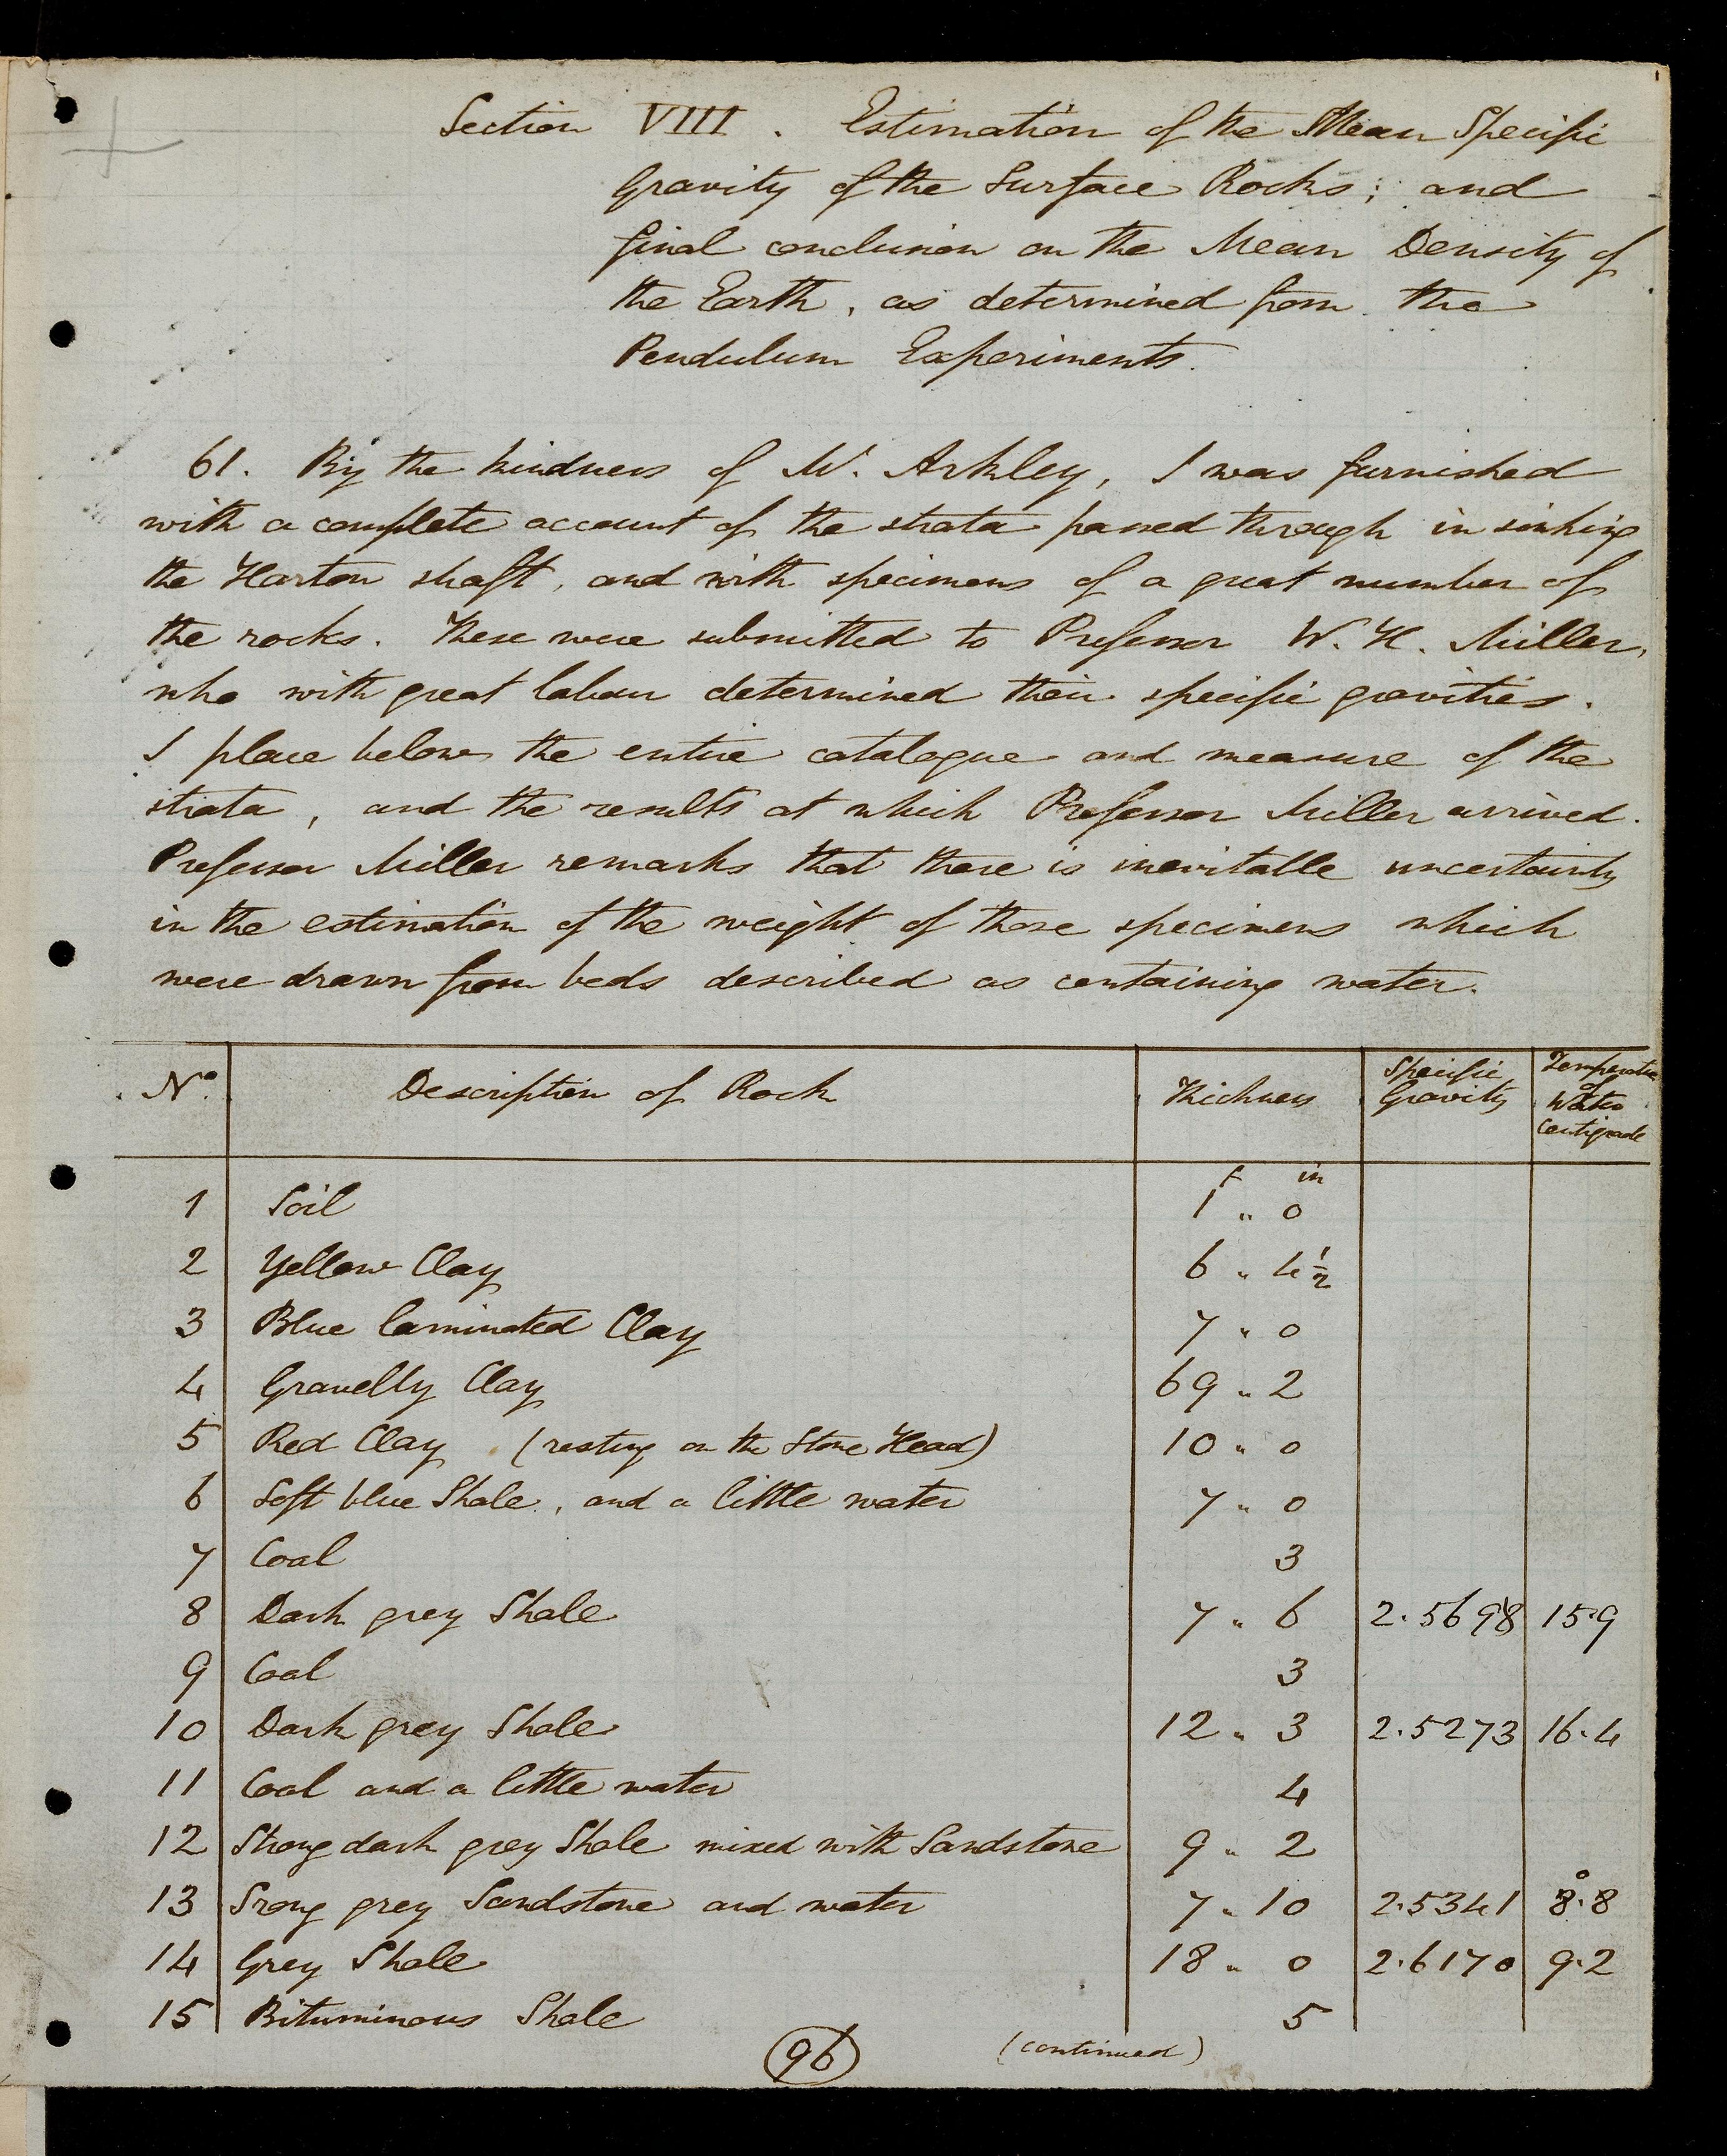 Section VIII. Estimation of the Mean Specific
Gravity of the Surface Rocks; and
final conclusion on the Mean Density of
the Earth, as determined from the
Pendulum Experiments.
61. By the kindness of Mr. Arkley, I was furnished
with a complete account of the strata passed through in sinking
the Harton shaft, and with specimens of a great number of
the rocks. These were submitted to Professor W. H. Miller,
who with great labour determined their specific gravities.
I place below the entire catalogue and measure of the
strata, and the results at which Professor Miller arrived.
Professor Miller remarks that there is inevitable uncertainty
in the estimation of the weight of those specimens which
were drawn from beds described as containing water.
No. Description of Rock Thickness Specific Gravity Temperature of Water Centigrade
f in
1 Soil 1 " 0
2 Yellow Clay 6 " 4½
3 Blue laminated Clay 7 " 0
4 Gravelly Clay 69 " 2
5 Red Clay (resting on the Stone Head) 10 " 0
6 Soft blue Shale, and a little water 7 " 0
7 Coal 3
8 Dark grey Shale 7 " 6 2.5698 15.9
9 Coal 3
10 Dark grey Shale 12 " 3 2.5273 16.4
11 Coal and a little water 4
12 Strong dark grey Shale mixed with Sandstone 9 " 2
13 Srong grey Sandstone and water 7 " 10 2.5341 8°.8
14 Grey Shale 18 " 0 2.6170 9.2
15 Bituminous Shale 5
(continued)
96